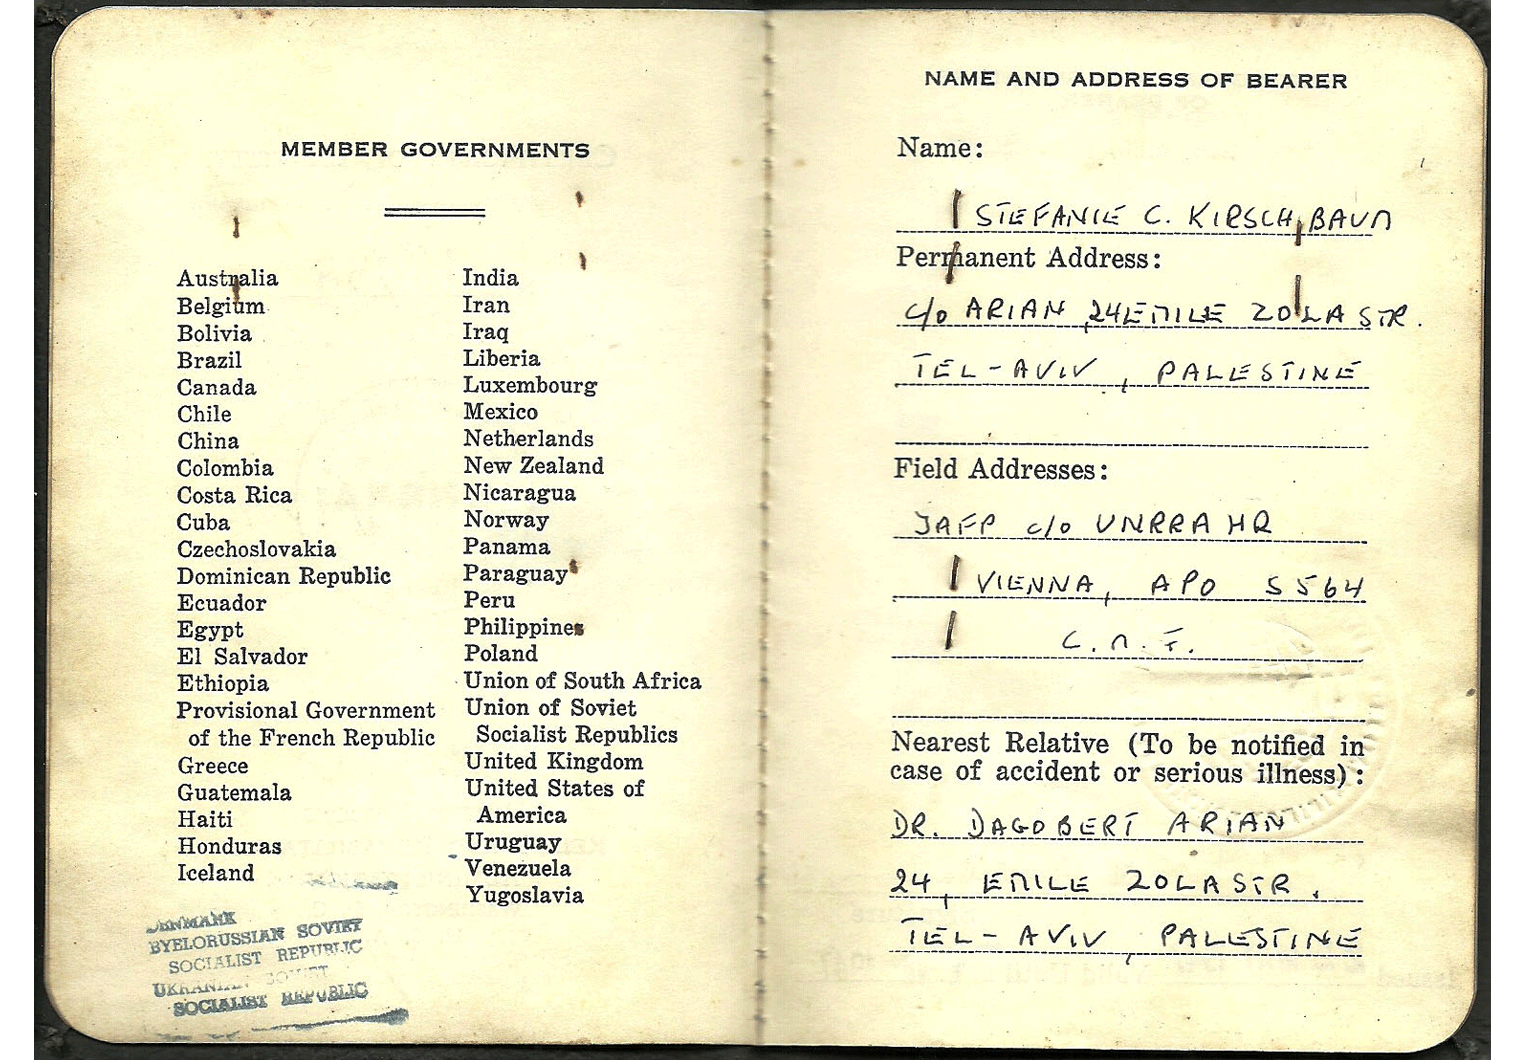 MEMBER GOVERNMENTS
Australia
Belgium
Bolivia
Brazil
Canada
Chile
China
Colombia
Costa Rica
Cuba
Czechoslovakia
Dominican Republic
Ecuador
Egypt
El Salvador
Ethiopia
Provisional Government
of the French Republic
Greece
Guatemala
Haiti
Honduras
Iceland
India
Iran
Iraq
Liberia
Luxembourg
Mexico
Netherlands
New Zealand
Nicaragua
Norway
Panama
Paraguay
Peru
Philippines
Poland
Union of South Africa
Union of Soviet
Socialist Republics
United Kingdom
United States of
America
Uruguay
Venezuela
Yugoslavia
DENMARK
BYELORUSSIAN SOVIET
SOCIALIST REPUBLIC
UKRANIAN SOVIET
SOCIALIST REPUBLIC
NAME AND ADDRESS OF BEARER
Name:
STEFANIE C. KIRSCHBAUM
Permanent Address:
c/o ARIAN, 24 EMILE ZOLA STR.
TEL-AVIV, PALESTINE
Field Addresses:
JAFP c/o UNRRA HQ
VIENNA, APO S564
C.M.F.
Nearest Relative (To be notified in
case of accident or serious illness):
DR. DAGOBERT ARIAN
24, EMILE ZOLA STR.
TEL-AVIV, PALESTINE